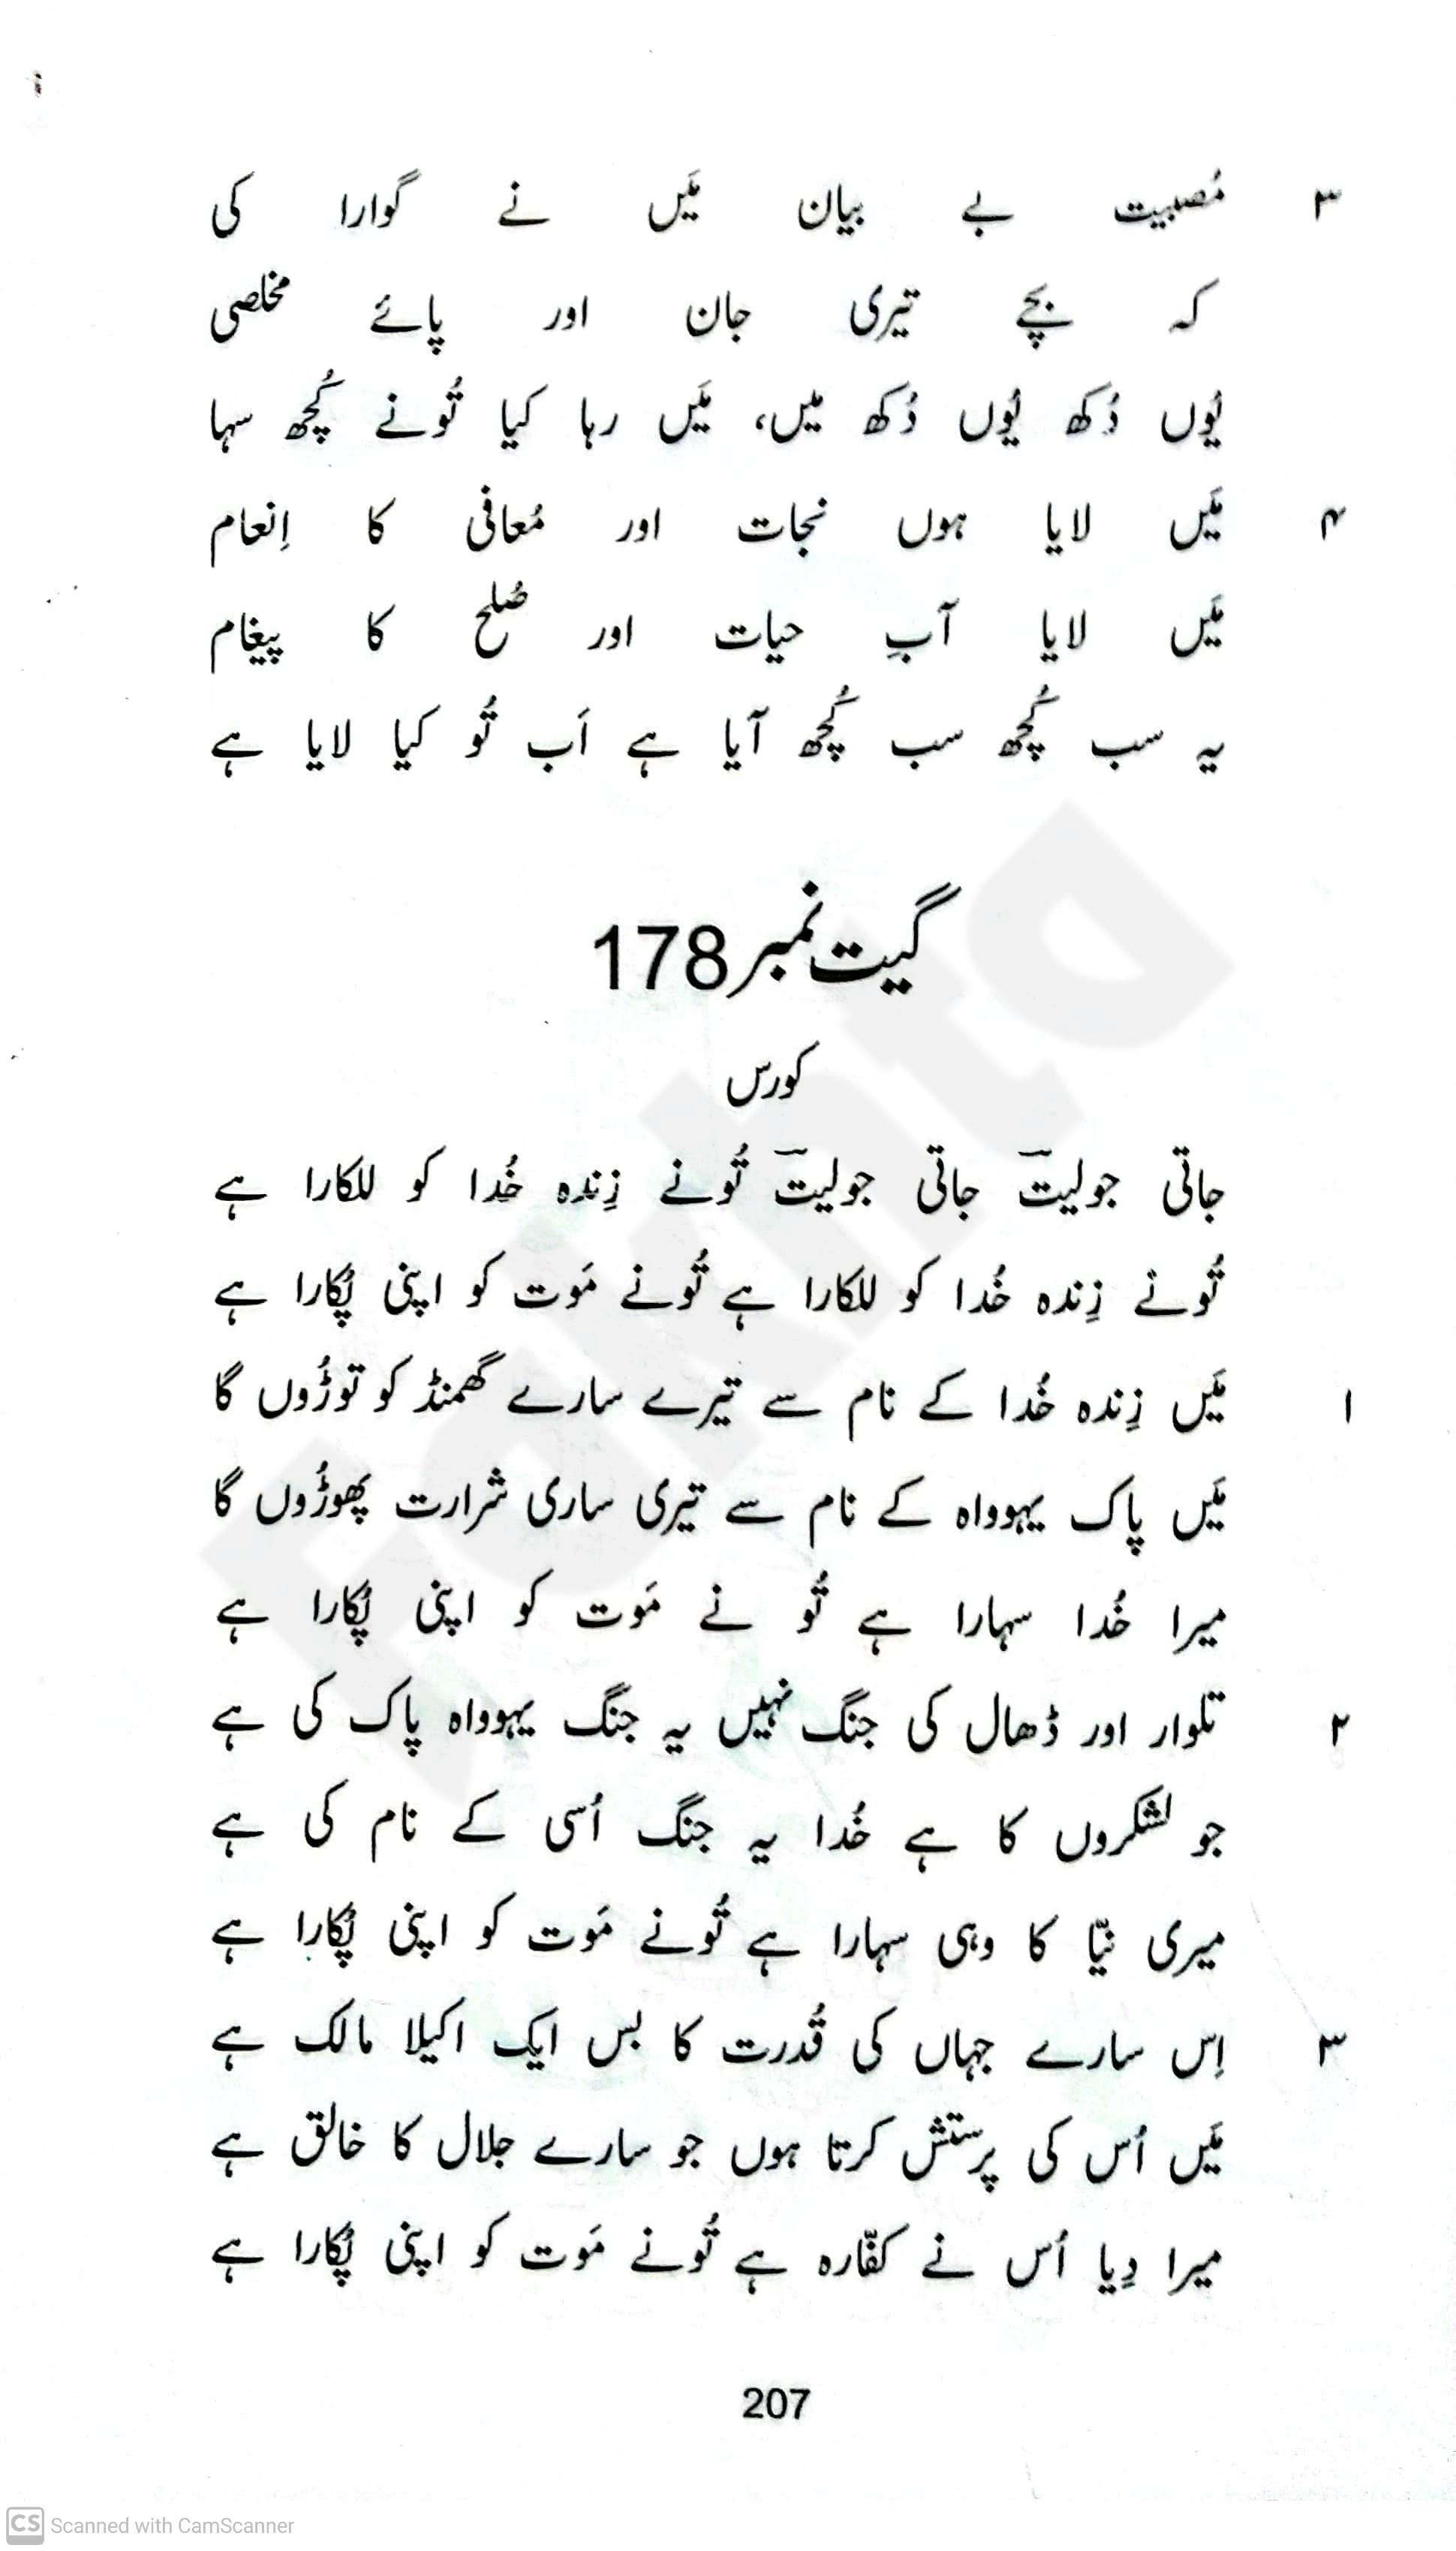 ۳ مُصبیت بے بیان مَیں نے گوارا کی
کہ بچے تیری جان اور پائے مخلصی
یُوں دُکھ یُوں دُکھ میں، مَیں رہا کیا تُونے کُچھ سہا
۴ مَیں لایا ہوں نجات اور مُعافی کا اِنعام
مَیں لایا آبِ حیات اور صُلح کا پیغام
یہ سب کُچھ سب کُچھ آیا ہے اَب تُو کیا لایا ہے
گیت نمبر 178
کورس
جاتی جولیت جاتی جولیت تُونے زِندہ خُدا کو للکارا ہے
تُونے زِندہ خُدا کو للکارا ہے تُونے مَوت کو اپنی پُکارا ہے
۱ مَیں زِندہ خُدا کے نام سے تیرے سارے گھمنڈ کو توڑُوں گا
مَیں پاک یہوواہ کے نام سے تیری ساری شرارت پھوڑُوں گا
میرا خُدا سہارا ہے تُو نے مَوت کو اپنی پُکارا ہے
۲ تلوار اور ڈھال کی جنگ نہیں یہ جنگ یہوواہ پاک کی ہے
جو لشکروں کا ہے خُدا یہ جنگ اُسی کے نام کی ہے
میری نیّا کا وہی سہارا ہے تُونے مَوت کو اپنی پُکارا ہے
۳ اِس سارے جہاں کی قُدرت کا بس ایک اکیلا مالک ہے
مَیں اُس کی پرستش کرتا ہوں جو سارے جلال کا خالق ہے
میرا دِیا اُس نے کفّارہ ہے تُونے مَوت کو اپنی پُکارا ہے
207
CS Scanned with CamScanner
Fakhta